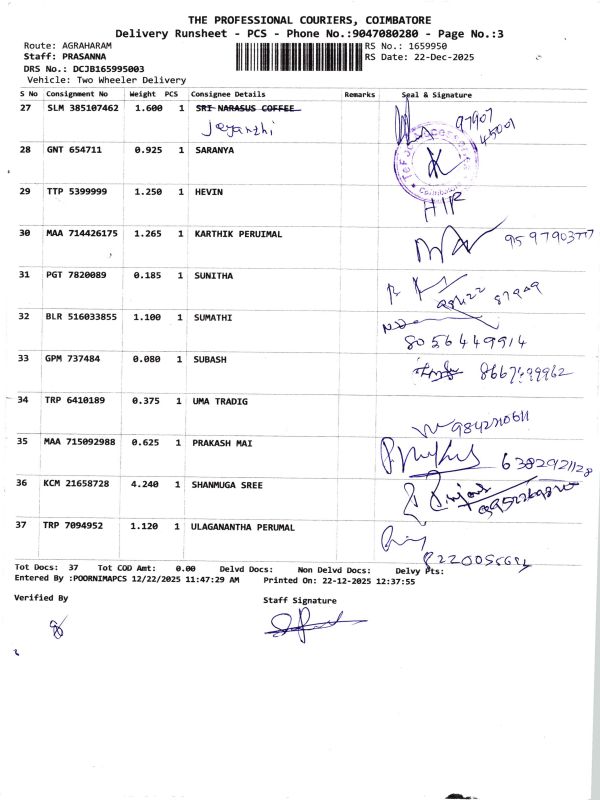 THE PROFESSIONAL COURIERS, COIMBATORE
Delivery Runsheet - PCS - Phone No.:9047080280 - Page No.:3
Route: AGRAHARAM RS No.: 1659950
Staff: PRASANNA RS Date: 22-Dec-2025
DRS No.: DCJB165995003
Vehicle: Two Wheeler Delivery
S No Consignment No Weight PCS Consignee Details Remarks Seal & Signature
27 SLM 385107462 1.600 1 SRI NARASUS COFFEE
Jayanthi 97907
45001
28 GNT 654711 0.925 1 SARANYA
29 TTP 5399999 1.250 1 HEVIN
30 MAA 714426175 1.265 1 KARTHIK PERUIMAL
31 PGT 7820089 0.185 1 SUNITHA
32 BLR 516033855 1.100 1 SUMATHI
8056449914
33 GPM 737484 0.080 1 SUBASH
34 TRP 6410189 0.375 1 UMA TRADIG
35 MAA 715092988 0.625 1 PRAKASH MAI
6382921128
36 KCM 21658728 4.240 1 SHANMUGA SREE
37 TRP 7094952 1.120 1 ULAGANANTHA PERUMAL
Tot Docs: 37 Tot COD Amt: 0.00 Delvd Docs: Non Delvd Docs: Delvy Pts:
Entered By :POORNIMAPCS 12/22/2025 11:47:29 AM Printed On: 22-12-2025 12:37:55
Verified By Staff Signature